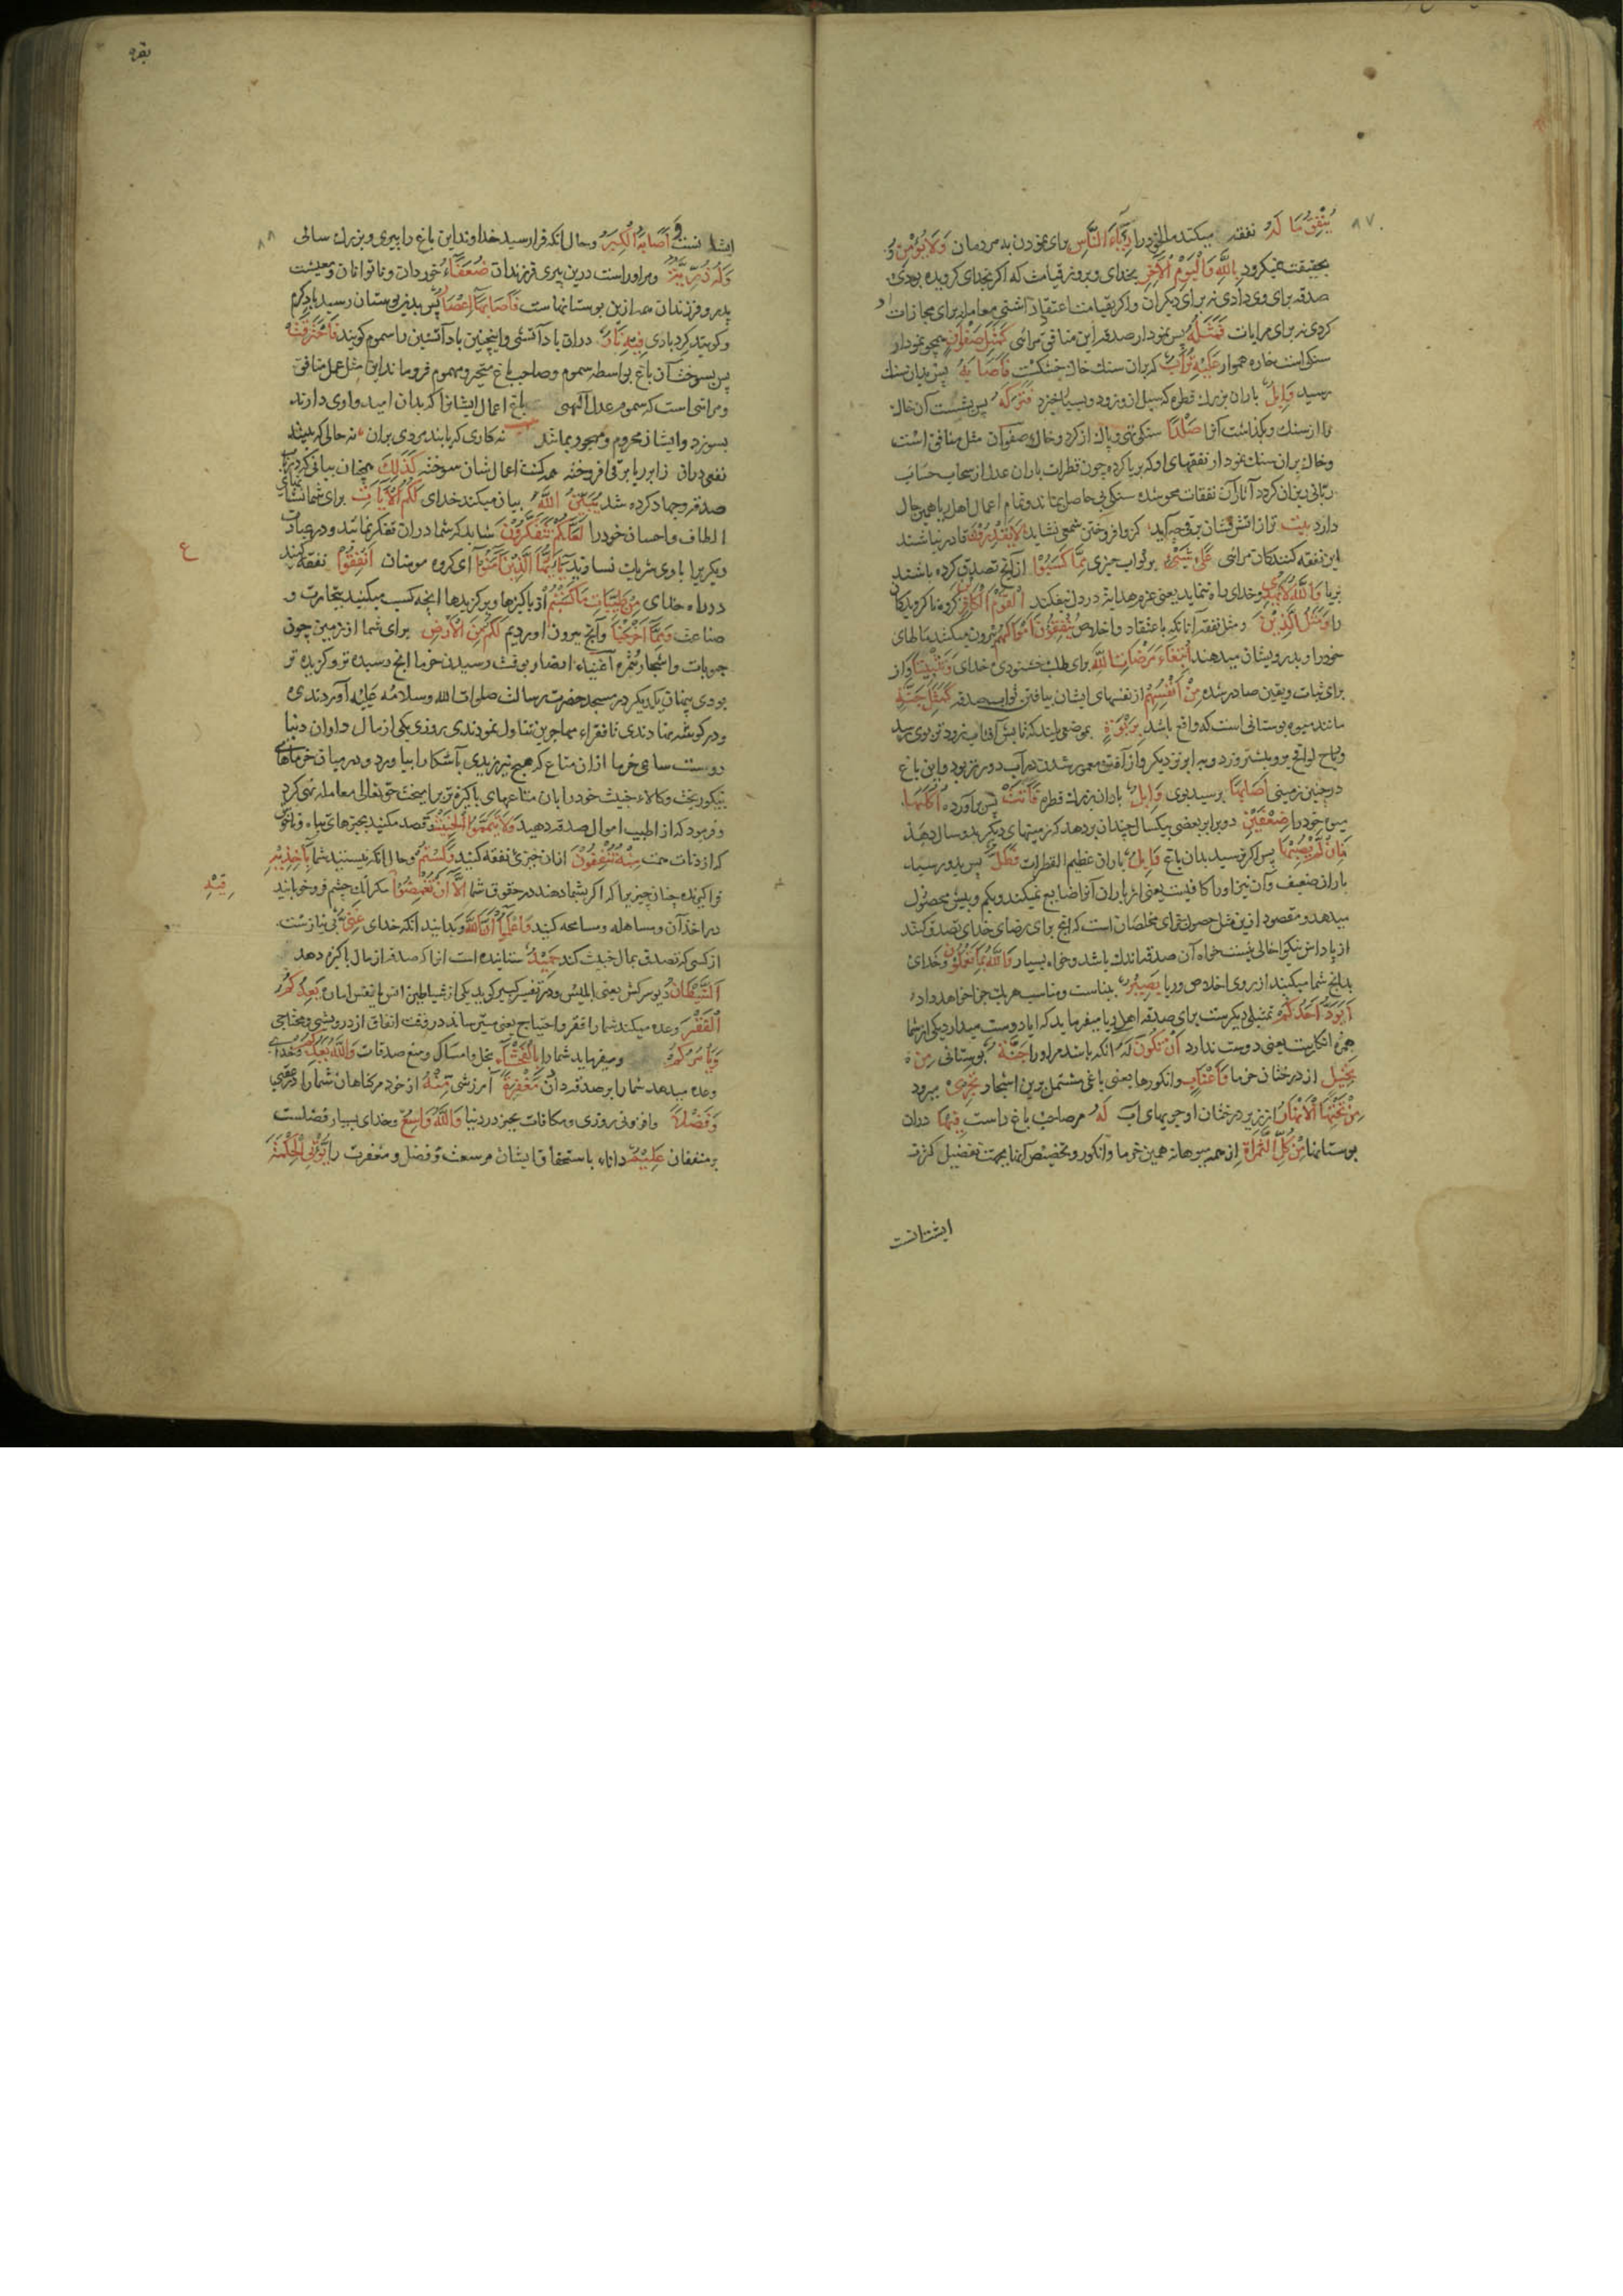 ٨٧
يُنْفِقُ مَالَهُ نفقه میکند مال خود را رِئَاءَ النَّاسِ برای نمودن بدمردمان وَلَا يُؤْمِنُ و
بحقیقت نمیکرود بِاللَّهِ وَالْيَوْمِ الْآخِرِ بخدای و بروز قیامت که اکر بخدای کرویده بودی
صدقه برای وی دادی نه برای دیکران و اکر بقیامت اعتقاد داشتی معامله برای مجازات
کردی نه برای مرایات فَمَثَلُهُ پس نمودار صدقه این منافق مرائی كَمَثَلِ صَفْوَانٍ همچو نمودار
سنکی است خاره هموار عَلَيْهِ تُرَابٌ که بران سنك خاك خشکست فَأَصَابَهُ پس بدان سنك
رسید وَابِلٌ باران بزرك قطره که سیل ازو زود و بسیار خیزد فَتَرَكَهُ پس بشست آن خاك
را از سنك و بکذاشت آنرا صَلْدًا سنکی تهی و پاك از کرد و خاك صفوان مثل منافق است
و خاك بران سنك نمودار نفقهای او که بریا کرده چون قطرات باران عدل از سحاب حساب
ربانی ریزان کردد آثار آن نفقات محو شده سنکی بی حاصل بماند و تمام اعمال اهل ریا همین حال
دارد بیت لَا يَقْدِرُونَ قادر نباشند
این نفقه کنندکان مرائی عَلَى شَيْءٍ بر ثواب چیزی مِمَّا كَسَبُوا از آنچ تصدق کرده باشند
بریا وَاللَّهُ لَا يَهْدِي و خدای راه ننماید یعنی عزم هدایت در دل نیفکند الْقَوْمَ الْكَافِرِينَ کروه ناکرویدکان
را وَمَثَلُ الَّذِينَ و مثل نفقه آنانکه باعتقاد و اخلاص يُنْفِقُونَ أَمْوَالَهُمُ بیرون میکنند مالهای
خود را و بدرویشان میدهند ابْتِغَاءَ مَرْضَاتِ اللَّهِ برای طلب خشنودی خدای وَتَثْبِيتًا و از
برای ثبات و یقین صادر شده مِنْ أَنْفُسِهِمْ از نفسهای ایشان بیافتن ثواب صدقه كَمَثَلِ جَنَّةٍ
مانند میوه بوستانی است که واقع باشد بِرَبْوَةٍ بموضعی بلند که تابش آفتاب زودتر بوی رسد
و ریاح لواقح برو بیشتر وزد و به ابر نزدیکتر و از آفت دور تر بود و این باغ
در چنین زمینی أَصَابَهَا برسید بوی وَابِلٌ باران بزرك قطره فَآتَتْ پس بر آورد أُكُلَهَا
میوه خود را ضِعْفَيْنِ دو برابر یعنی بیکسال چندان بر دهد که زمینهای دیکر بدو سال دهند
فَإِنْ لَمْ يُصِبْهَا پس اکر نرسید بدان باغ وَابِلٌ باران عظیم القطرات فَطَلٌّ پس بدو رسید
باران ضعیف و آن نیز او را کافیست
میدهد و مقصود ازین مثل حصول ثوابهای مخلصان است که آنچ برای رضای خدای تصدق کنند
از پاداش نیکو خالی نیست خواه آن صدقه اندك باشد و خواه بسیار وَاللَّهُ بِمَا تَعْمَلُونَ و خدای
بدانچ شما میکنید از روی اخلاص و ریا بَصِيرٌ بیناست و مناسب هر یك جزا خواهد داد
أَيَوَدُّ أَحَدُكُمْ تمثیلی دیکرست برای صدقه اهل ریا میفرماید که ایا دوست میدارد یکی از شما
همزه انکاریست یعنی دوست ندارد أَنْ تَكُونَ لَهُ انکه باشد مر او را جَنَّةٌ بوستانی مِنْ
نَخِيلٍ از درختان خرما وَأَعْنَابٍ و انکورها یعنی باغی مشتمل برین اشجار تَجْرِي میرود
مِنْ تَحْتِهَا الْأَنْهَارُ از زیر درختان او جویهای آب لَهُ مر صاحب باغ راست فِيهَا دران
بوستانها مِنْ كُلِّ الثَّمَرَاتِ از همه میوها نه همین خرما و انکور و تخصیص آنها بجهت تفضیل کثرت
بقره
٨٨
وَأَصَابَهُ الْكِبَرُ و حال انکه فرا رسید خداوند این باغ را پیری و بزرك سالی
وَلَهُ ذُرِّيَّةٌ و مر او راست درین پیری فرزندان ضُعَفَاءُ خوردان و ناتوانان و معیشت
پدر و فرزندان همه ازین بوستانهاست فَأَصَابَهَا إِعْصَارٌ پس بدین بوستان رسید باد کرم
و کویند کردبادی فِيهِ نَارٌ دران باد آتشی و اینچنین باد آتشین را سموم کویند فَاحْتَرَقَتْ
پس بسوخت آن باغ بواسطه سموم و صاحب باغ متحیر و مهموم فرو ماند این مثل عمل منافق
و مرائی است که سموم عدل الهی باغ اعمال ایشانرا که بدان امیدواری دارند
بسوزد و ایشان محروم و مهجور بمانند
كَذَلِكَ همچنان بیانی که در باب
صدقه و جهاد کرده شد يُبَيِّنُ اللَّهُ بیان میکند خدای لَكُمُ الْآيَاتِ برای شما نشانهای
الطاف و احسان خود را لَعَلَّكُمْ تَتَفَكَّرُونَ شاید که شما دران تفکر نمائید و در عبادت
دیکریرا با وی شریك نسازید يَا أَيُّهَا الَّذِينَ آمَنُوا ای کروه مومنان أَنْفِقُوا نفقه کنید
ع
در راه خدای مِنْ طَيِّبَاتِ مَا كَسَبْتُمْ از پاکیزها و برکزیدها انچه کسب میکنید بتجارت و
صناعت وَمِمَّا أَخْرَجْنَا و آنچ بیرون اوردیم لَكُمْ مِنَ الْأَرْضِ برای شما از زمین چون
حبوبات و اشجار مثمره اغنیاء انصار بوقت رسیدن خرما انچ رسیده تر و کزیده تر
بودی پنهان یکدیکر در مسجد حضرت رسالت صلوات الله وسلامه علیه آوردندی
و در کوشه نهادندی تا فقراء مهاجرین تناول نمودندی روزی یکی از مال داران دنیا
دوست صاعی خرما ازان متاع که بهیچ نیرزیدی آشکارا بیاورد و در میان خرماهای
نیکو ریخت و کالاء خبیث خود را بان متاعهای پاکیزه تر برامیخت حق تعالی از معامله نهی کرد
و فرمود که از اطیب اموال صدقه دهید وَلَا تَيَمَّمُوا الْخَبِيثَ و قصد مکنید بچیزهای تباه و ناخوش
مِنْهُ تُنْفِقُونَ ازان چیزی نفقه کنید وَلَسْتُمْ و حال انکه نیستید شما بِآخِذِيهِ
فرا کیرنده چنان چیزیرا که اکر بشما دهند در حقوق شما إِلَّا أَنْ تُغْمِضُوا مکر آنك چشم فرو خوابانید
فِيهِ
در اخذ آن و مساهله و مسامحه کنید وَاعْلَمُوا أَنَّ اللَّهَ و بدانید انکه خدای غَنِيٌّ بی نیازست
از کسی که تصدق بمال خبیث کند حَمِيدٌ ستاینده است انرا که صدقه از مال پاکیزه دهد
الشَّيْطَانُ دیو سرکش یعنی ابلیس و در تفسیر کبیر کوید یکی از شیاطین انس یا نفس اماره يَعِدُكُمُ
الْفَقْرَ وعده میکند شما را فقر و احتیاج یعنی میترساند در وقت انفاق از درویشی و محتاجی
وَيَأْمُرُكُمْ و میفرماید شما را بِالْفَحْشَاءِ ببخل و امساك و منع صدقات وَاللَّهُ يَعِدُكُمْ و خدای
وعده میدهد شما را بر صدقه دادن مَغْفِرَةً آمرزشی مِنْهُ از خود مر کناهان شما را در عقبی
وَفَضْلًا و افزونی روزی و مکافات بخیر در دنیا وَاللَّهُ وَاسِعٌ و خدای بسیار فضلست
بر منفقان عَلِيمٌ داناء باستحقاق ایشان مر سعت و فضل و مغفرت را يُؤْتِي الْحِكْمَةَ